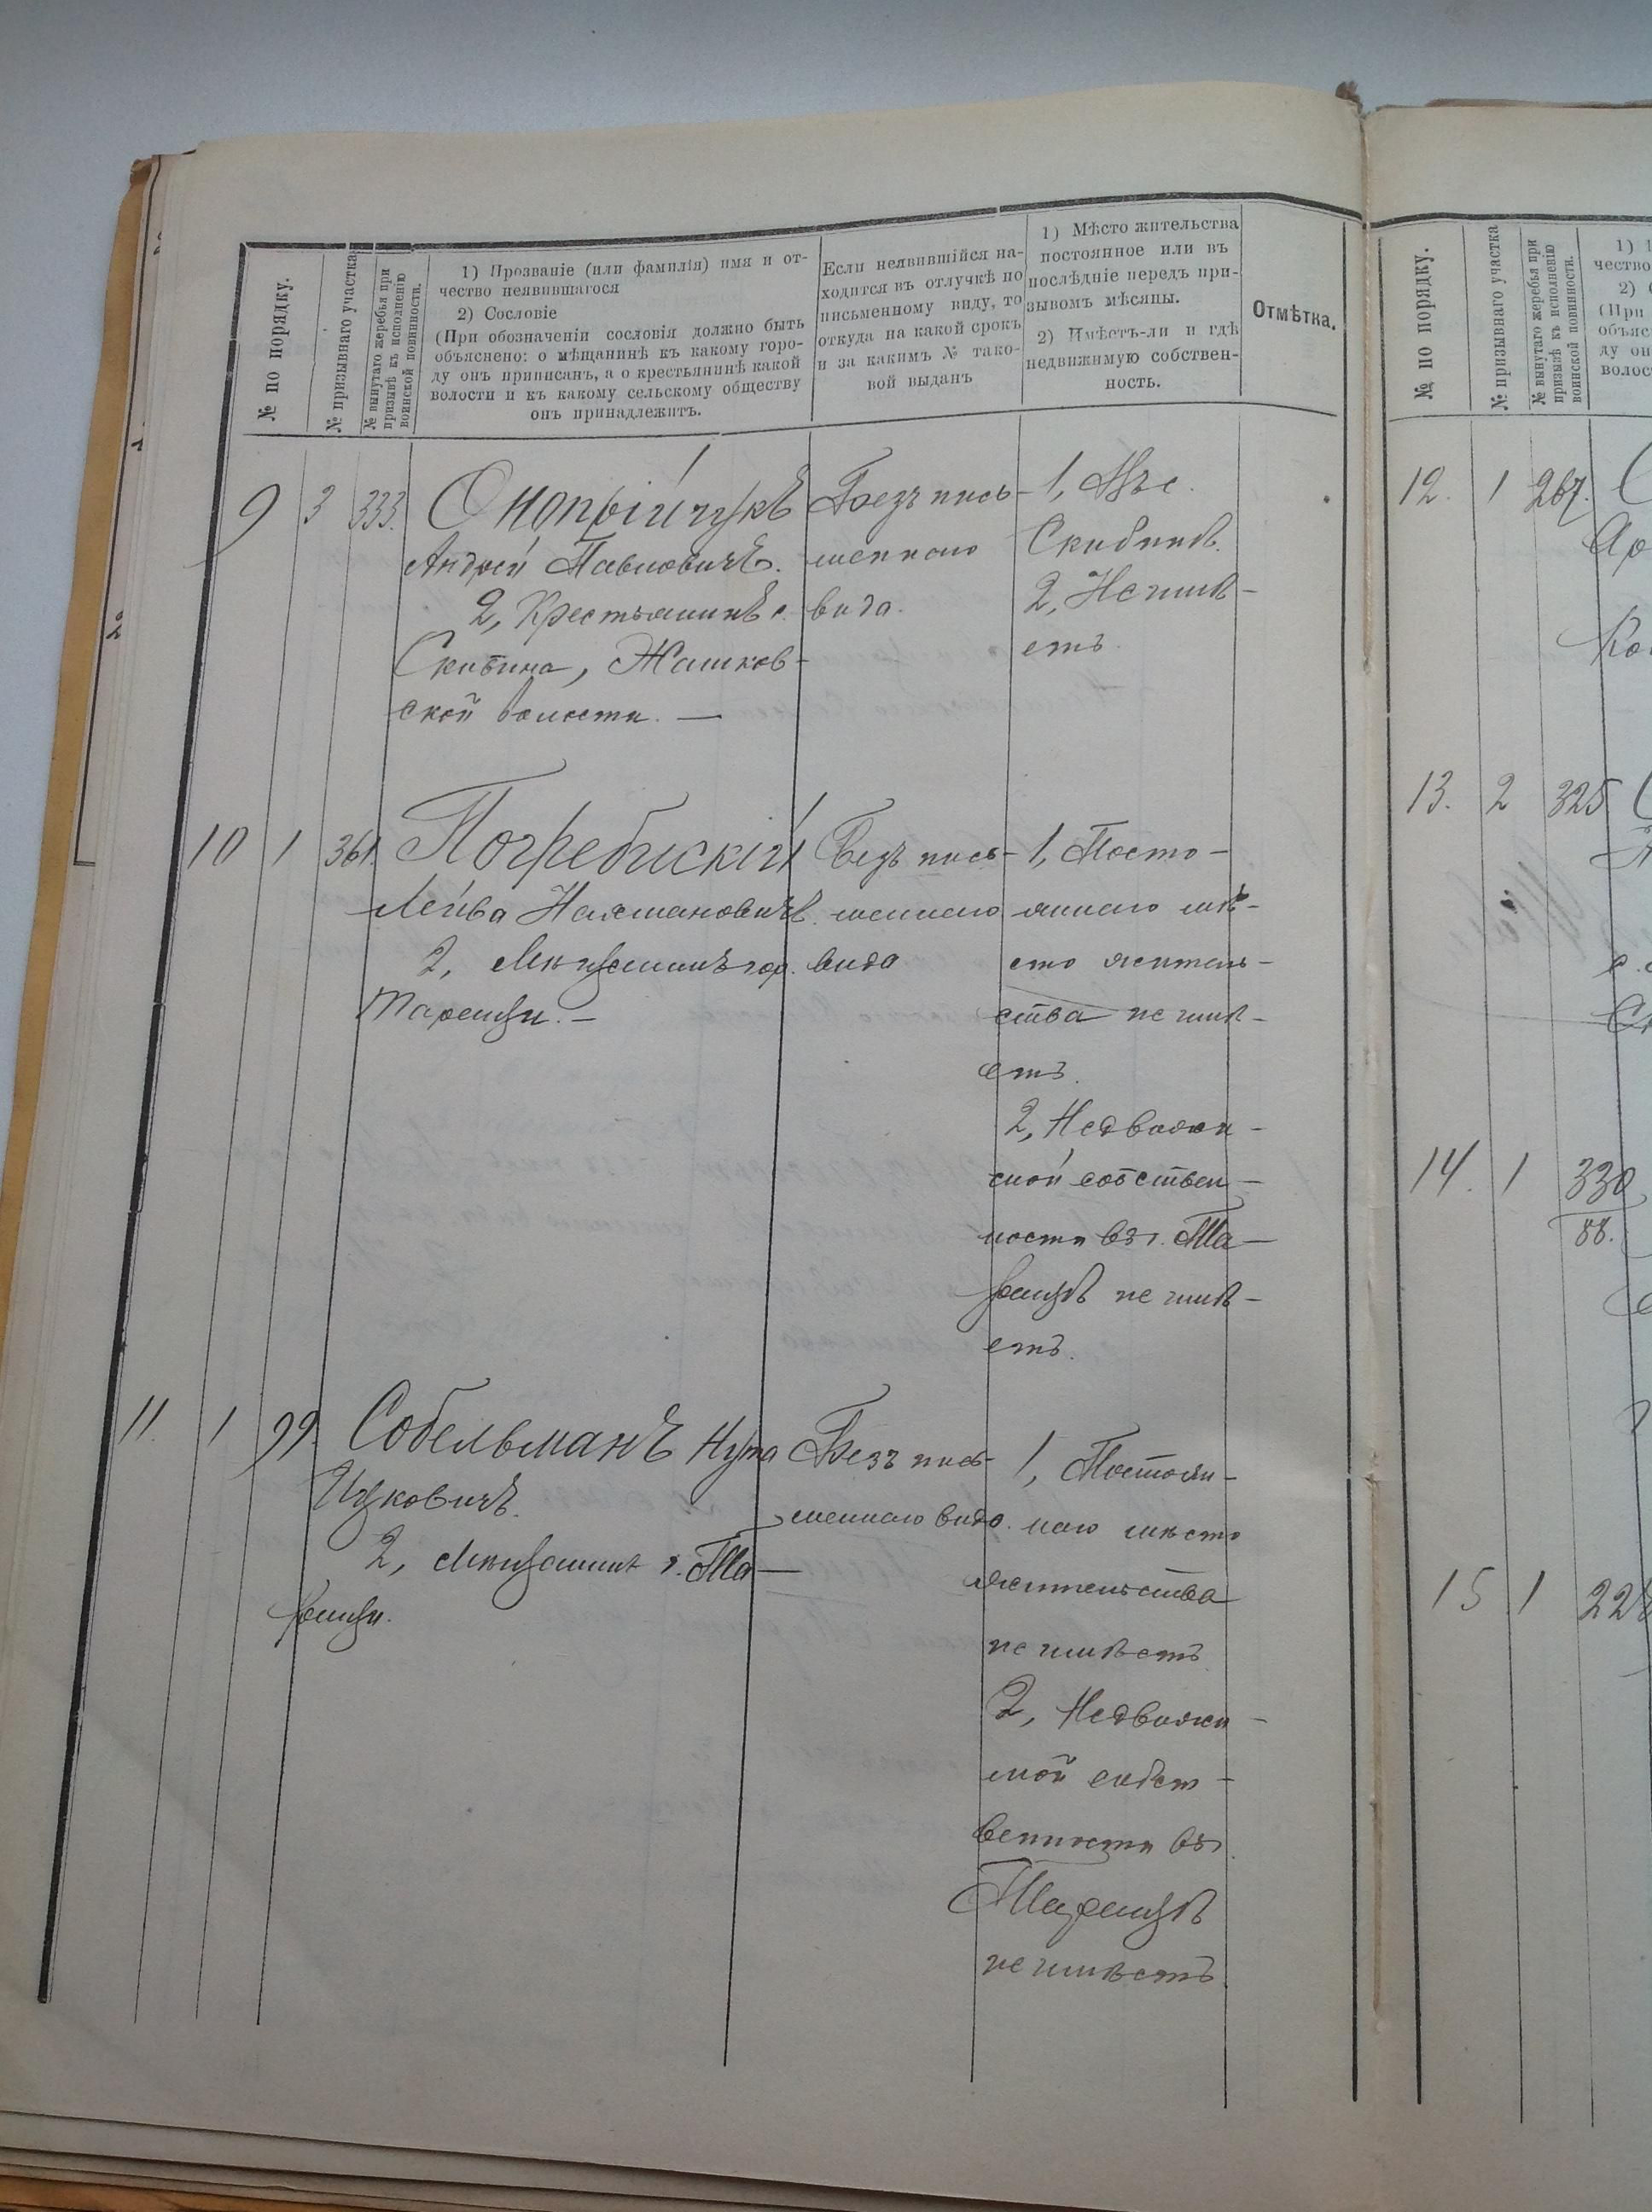 № по порядку.
№ призывнаго участка
№ вынутаго жеребья при
призывѣ къ исполненію
воинской повинности.
1) Прозваніе (или фамилія) имя и от-
чество неявившагося
2) Сословіе
(При обозначеніи сословія должно быть
объяснено: о мѣщанинѣ къ какому горо-
ду онъ приписанъ, а о крестьянинѣ какой
волости и къ какому сельскому обществу
онъ принадлежитъ.
Если неявившійся на-
ходится въ отлучкѣ по
письменному виду, то
откуда на какой срокъ
и за какимъ № тако-
вой выданъ
1) Мѣсто жительства
постоянное или въ
послѣдніе передъ при-
зывомъ мѣсяцы.
2) Имѣетъ-ли и гдѣ
недвижимую собствен-
ность.
Отмѣтка.
9
3
333.
Онопрійчукъ
Андрей Павловичъ.
2, Крестьянинъ с.
Скибина, Жашков-
ской волости. —
Безъ пись-
меннаго
вида.
1, Въ с.
Скибинѣ.
2, Неимѣ-
етъ.
10
1
361.
Погребискій
Лейва Нахмановичъ.
2, Мѣщанинъ гор.
Таращи. —
Безъ пись-
меннаго
вида
1, Посто-
яннаго мѣ-
сто житель-
ства не имѣ-
етъ.
2, Недвижи-
мой собствен-
ности въ г. Та-
ращѣ не имѣ-
етъ.
11.
1
99.
Собельманъ Нута
Ицковичъ.
2, Мѣщанинъ г. Та-
ращи.
Безъ пись-
меннаго вида.
1, Постоян-
наго мѣсто
жительства
не имѣетъ
2, Недвижи-
мой собст-
венности въ г.
Таращѣ
не имѣетъ.
№ по порядку.
№ призывнаго участка
№ вынутаго жеребья при
призывѣ къ исполненію
воинской повинности.
1)
чество
2)
(При
объяс
ду он
волос
12.
1
267.
13.
2
325
14.
1
330
88.
15
1